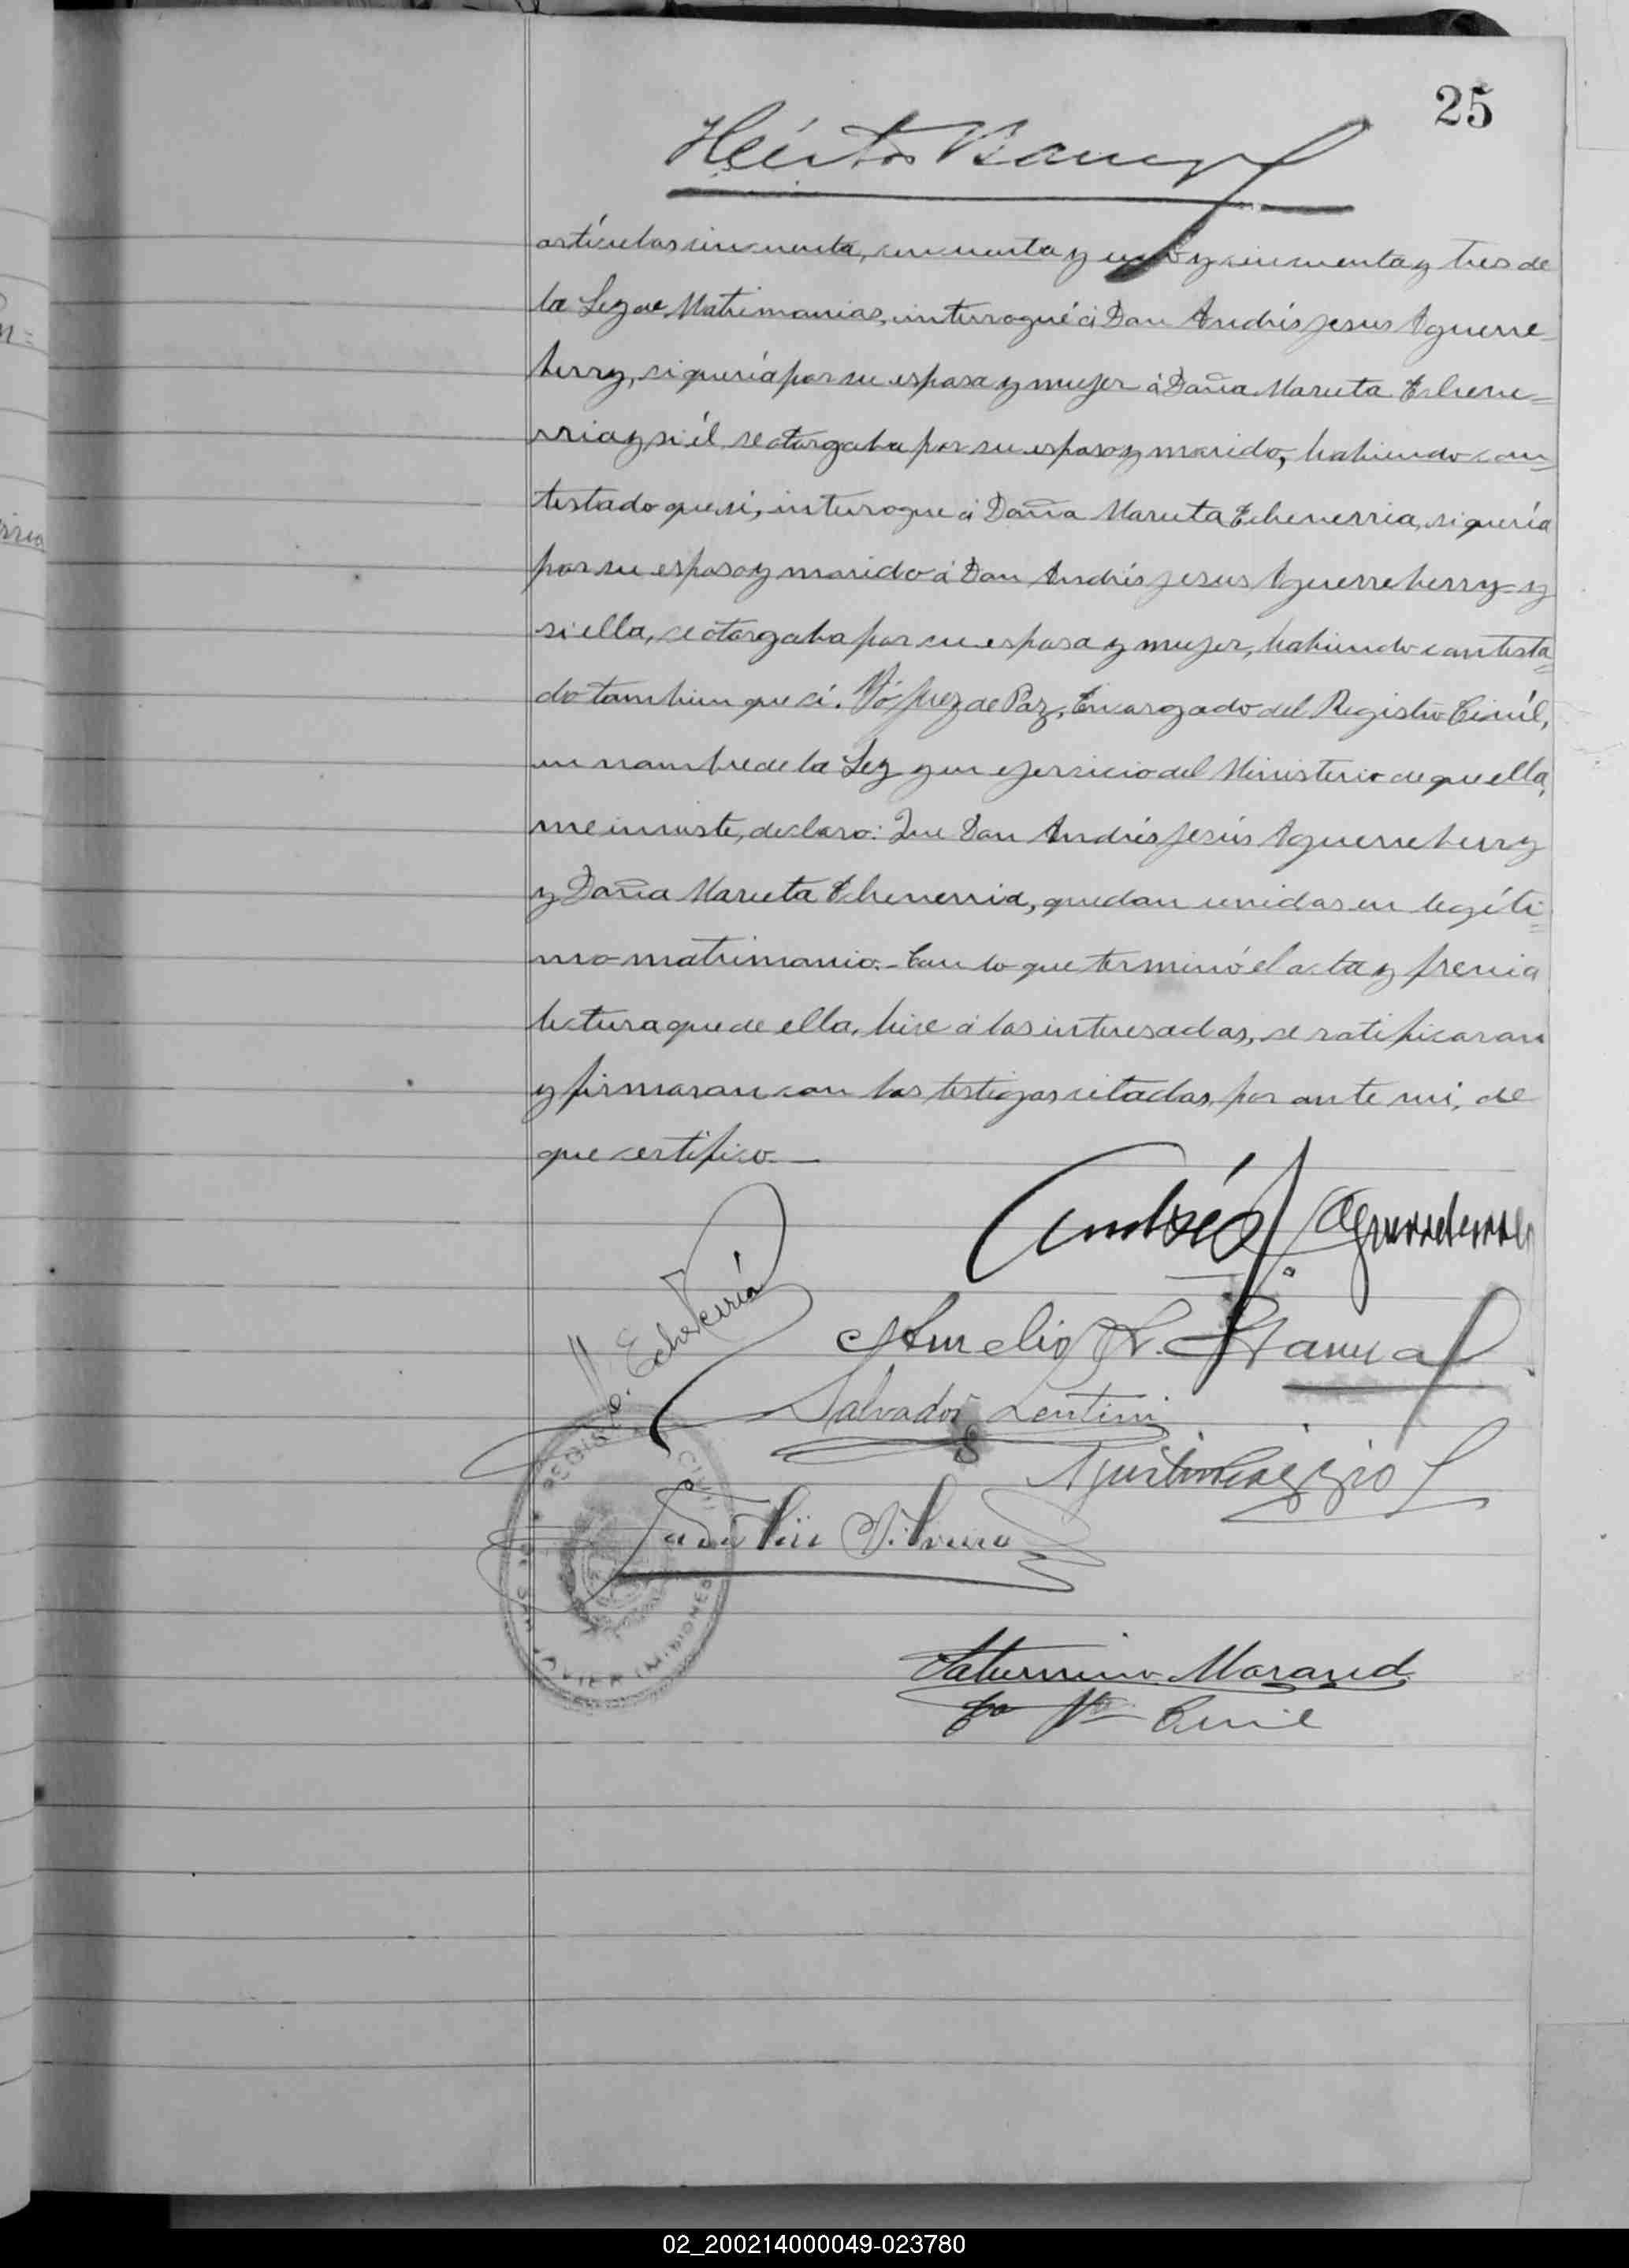 25
Héctor Barreyro
artículos cincuenta, cincuenta y uno y cincuenta y tres de
la Ley de Matrimonios, interrogué á Don Andrés Jesus Aguerre-
berry, si quería por su esposa y mujer á Doña Marieta Echeve=
rria y si él se otorgaba por su esposo y marido, habiendo con
testado que si, interrogue á Doña Marieta Echeverria, si quería
por su esposo y marido á Don Andrés Jesus Aguerreberry y
si ella, se otorgaba por su esposa y mujer, habiendo contesta=
do tambien que sí. Yó Juez de Paz, Encargado del Registro Civíl,
en nombre de la Ley y en ejersicio del Ministerio de que ella,
me inviste, declaro: Que Don Andrés Jesús Aguerreberry
y Doña Marieta Echeverria, quedan unidos en legíti=
mo matrimonio.- Con lo que terminó el acta y previa
lectura que de ella, hice á los interesados, se ratificaron
y firmaron con los testigos citados, por ante mi, de
que certifico.—
Andrés J. Aguerreberry
M. Echeverría
Aurelio
Salvador Lentini
REGISTRO CIVIL
SAN JAVIER (MISIONES)
Saturnino